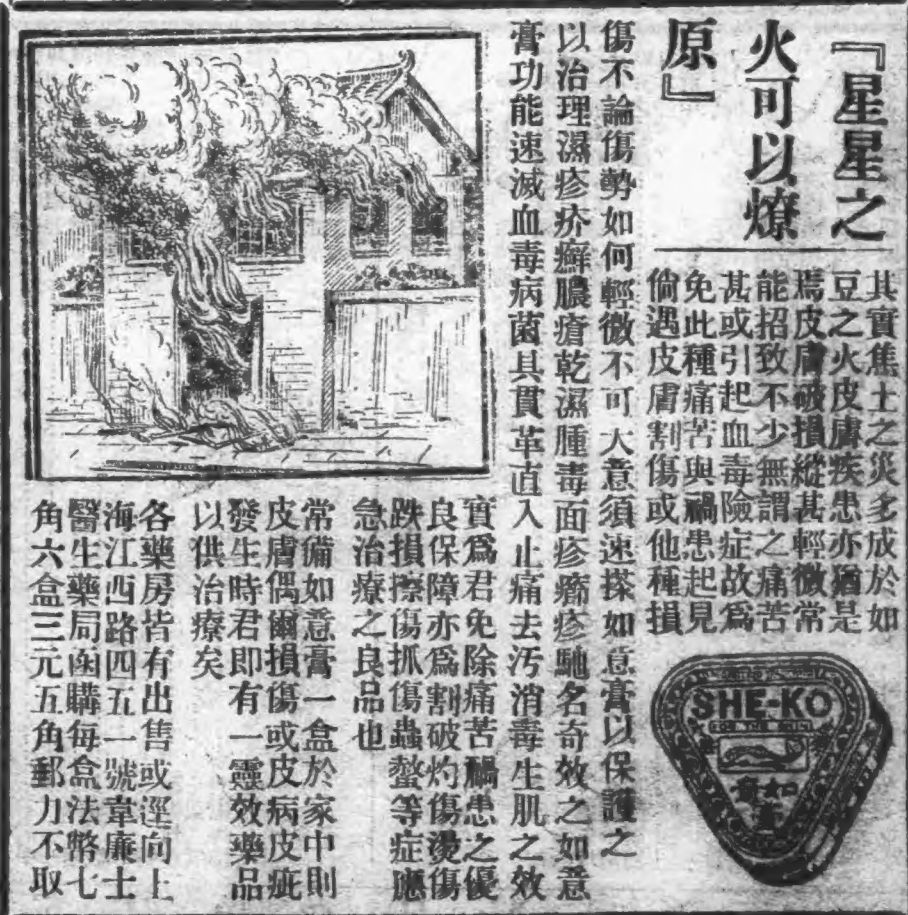 『星星之
火可以燎
原』
其實焦土之災多成於如
豆之火皮膚疾患亦猶是
焉皮膚破損縱甚輕微常
能招致不少無謂之痛苦
甚或引起血毒險症故爲
免此種痛苦與禍患起見
倘遇皮膚割傷或他種損
傷不論傷勢如何輕微不可大意須速搽如意膏以保護之
以治理濕疹疥癬膿瘡乾濕腫毒面疹癤疹馳名奇效之如意
膏功能速滅血毒病菌具貫革直入止痛去汚消毒生肌之效
實爲君免除痛苦禍患之優
良保障亦爲割破灼傷燙傷
跌損擦傷抓傷蟲螫等症應
急治療之良品也
常備如意膏一盒於家中則
皮膚偶爾損傷或皮病皮疵
發生時君即有一靈效藥品
以供治療矣
各藥房皆有出售或逕向上
海江西路四五一號韋廉士
醫生藥局函購每盒法幣七
角六盒三元五角郵力不取
SHE-KO
FOR THE SKIN
如意
膏